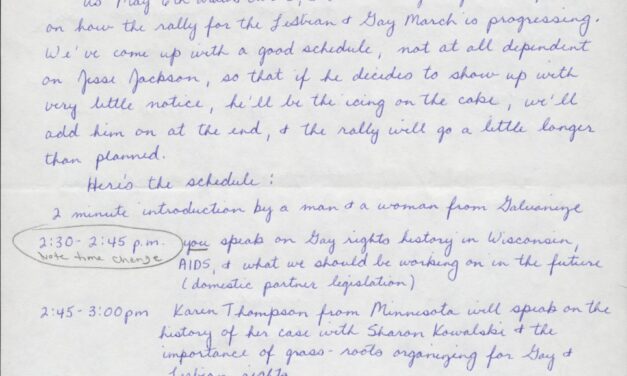 as May 6th
on how the rally for the Lesbian & Gay March is progressing.
We've come up with a good schedule, not at all dependent
on Jesse Jackson, so that if he decides to show up with
very little notice, he'll be the icing on the cake, we'll
add him on at the end, & the rally will go a little longer
than planned.
Here's the schedule:
2 minute introduction by a man & a woman from Galvanize
2:30-2:45 p.m. you speak on Gay rights history in Wisconsin,
Note time change AIDS, & what we should be working on in the future
(domestic partner legislation)
2:45-3:00pm Karen Thompson from Minnesota will speak on the
history of her case with Sharon Kowalski & the
importance of grass-roots organizing for Gay &
Lesbian rights